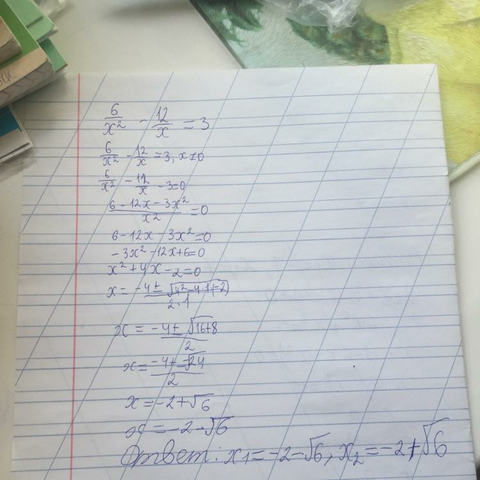 6/x² - 12/x = 3
6/x² - 12/x = 3, x≠0
6/x² - 12/x - 3=0
(6 - 12x - 3x²)/x² = 0
6 - 12x - 3x² = 0
-3x² - 12x + 6 = 0
x² + 4x - 2 = 0
x = (-4 ± √(4² - 4·1·(-2)))/(2·1)
x = (-4 ± √(16+8))/2
x = (-4 ± √24)/2
x = -2 + √6
x = -2 - √6
Ответ: x₁ = -2 - √6, x₂ = -2 + √6